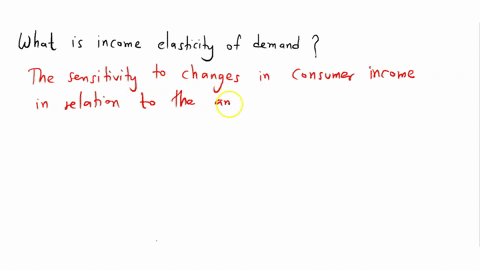 What is income elasticity of demand ?
The sensitivity to changes in consumer income
in relation to the an